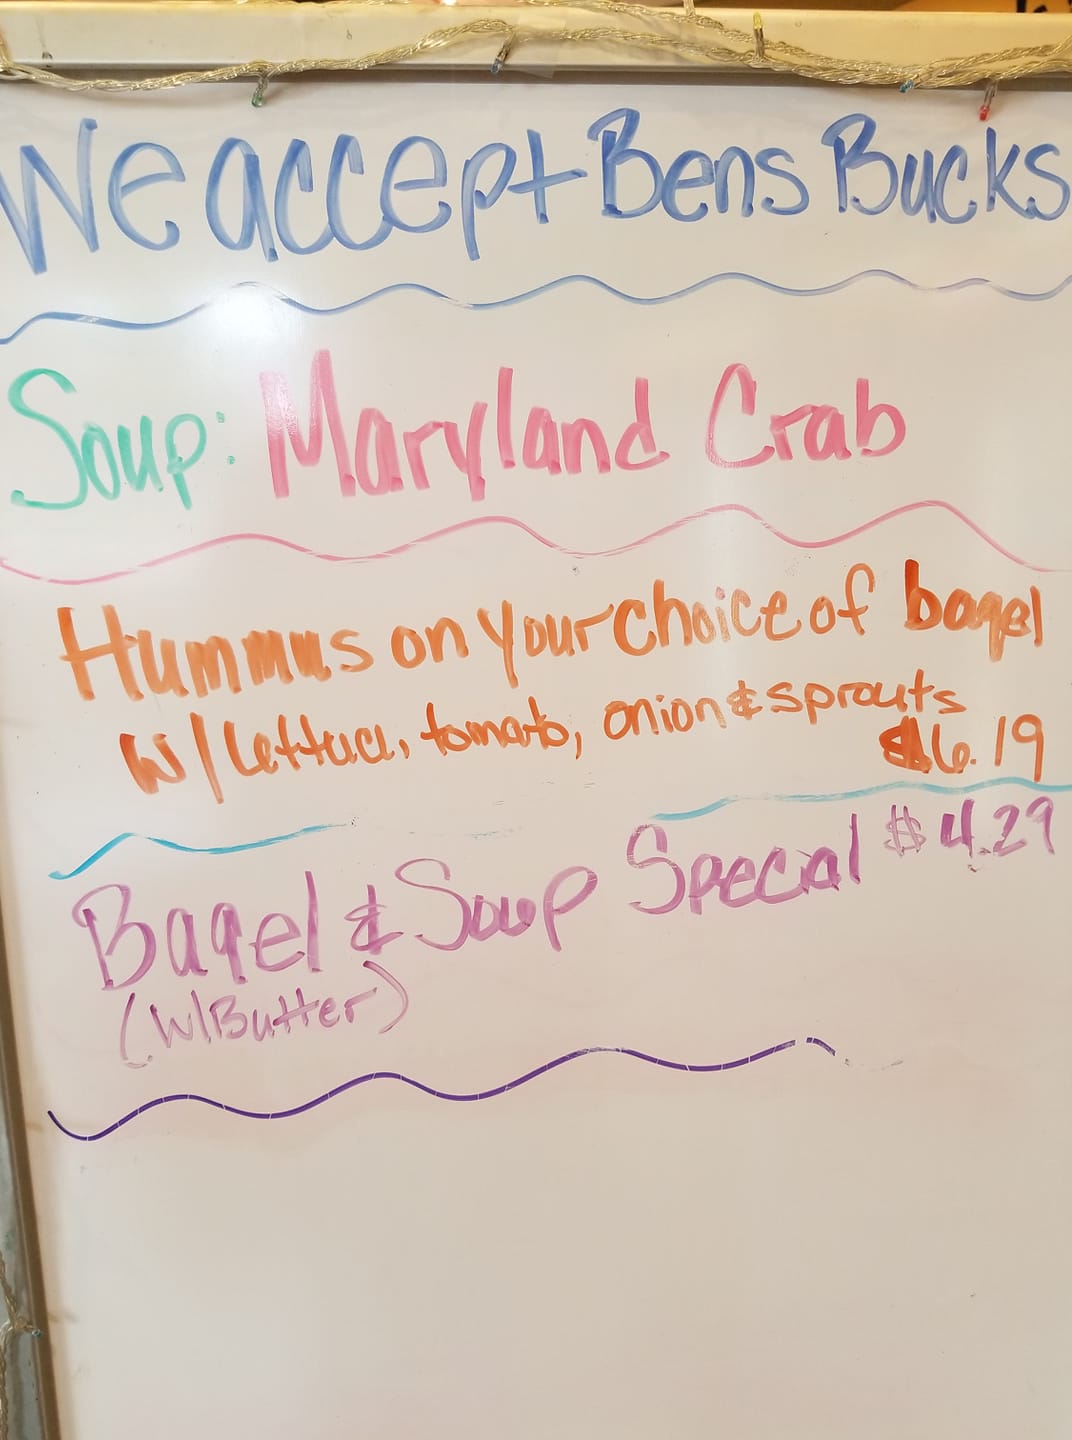 We accept Bens Bucks
Soup: Maryland Crab
Hummus on your choice of bagel
w/ lettuce, tomato, onion & sprouts
$6.19
Bagel & Soup Special $4.29
(w/Butter)